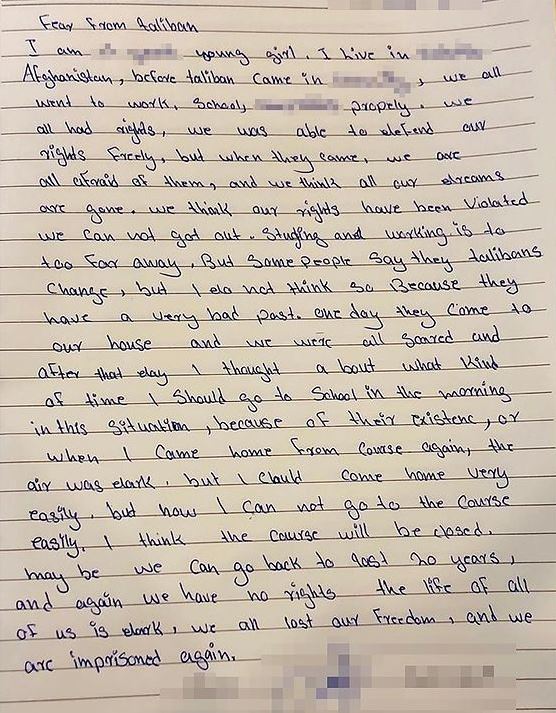 Fear From Taliban
I am young girl. I live in
Afghanistan, before taliban came in , we all
went to work, School, propely. we
all had rights, we was able to defend our
rights freely, but when they came, we are
all afraid of them, and we think all our dreams
are gone. we think our rights have been Violated
we can not got out. Studing and working is to
too far away. But Some people Say they talibans
Change, but I do not think so Because they
have a very bad past. one day they Come to
our house and we were all Scared and
after that day I thought a bout what Kind
of time I Should go to School in the morning
in this Situation, because of their existenc, or
when I came home from course again, the
air was dark. but I Clould come home very
easily. but now I can not go to the Course
easily. I think the Course will be closed.
may be we can go back to last 20 years,
and again we have no rights the life of all
of us is dark, we all lost our Freedom, and we
are imprisoned again.